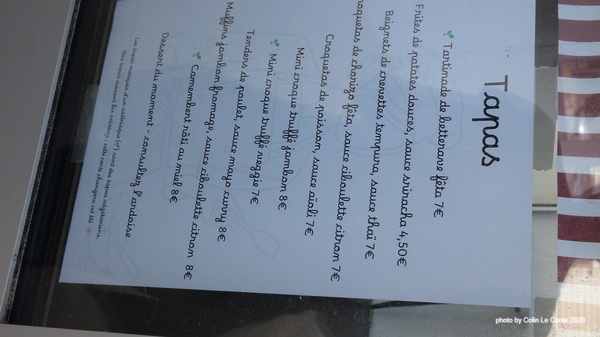 Tapas
Tartinade de betterave fêta 7€
Frites de patates douces, sauce sriracha 4,50€
Beignets de crevettes tempura, sauce thaï 7€
roquetas de chorizo fêta, sauce ciboulette citron 7€
Croquetas de poisson, sauce aïoli 7€
Mini croque truffé jambon 8€
Mini croque truffé veggie 7€
Tenders de poulet, sauce mayo curry 8€
Muffins jambon fromage, sauce ciboulette citron 8€
Camembert rôti au miel 8€
Dessert du moment - consultez l'ardoise
sont des tapas végétariens
photo by Colin Le 2025